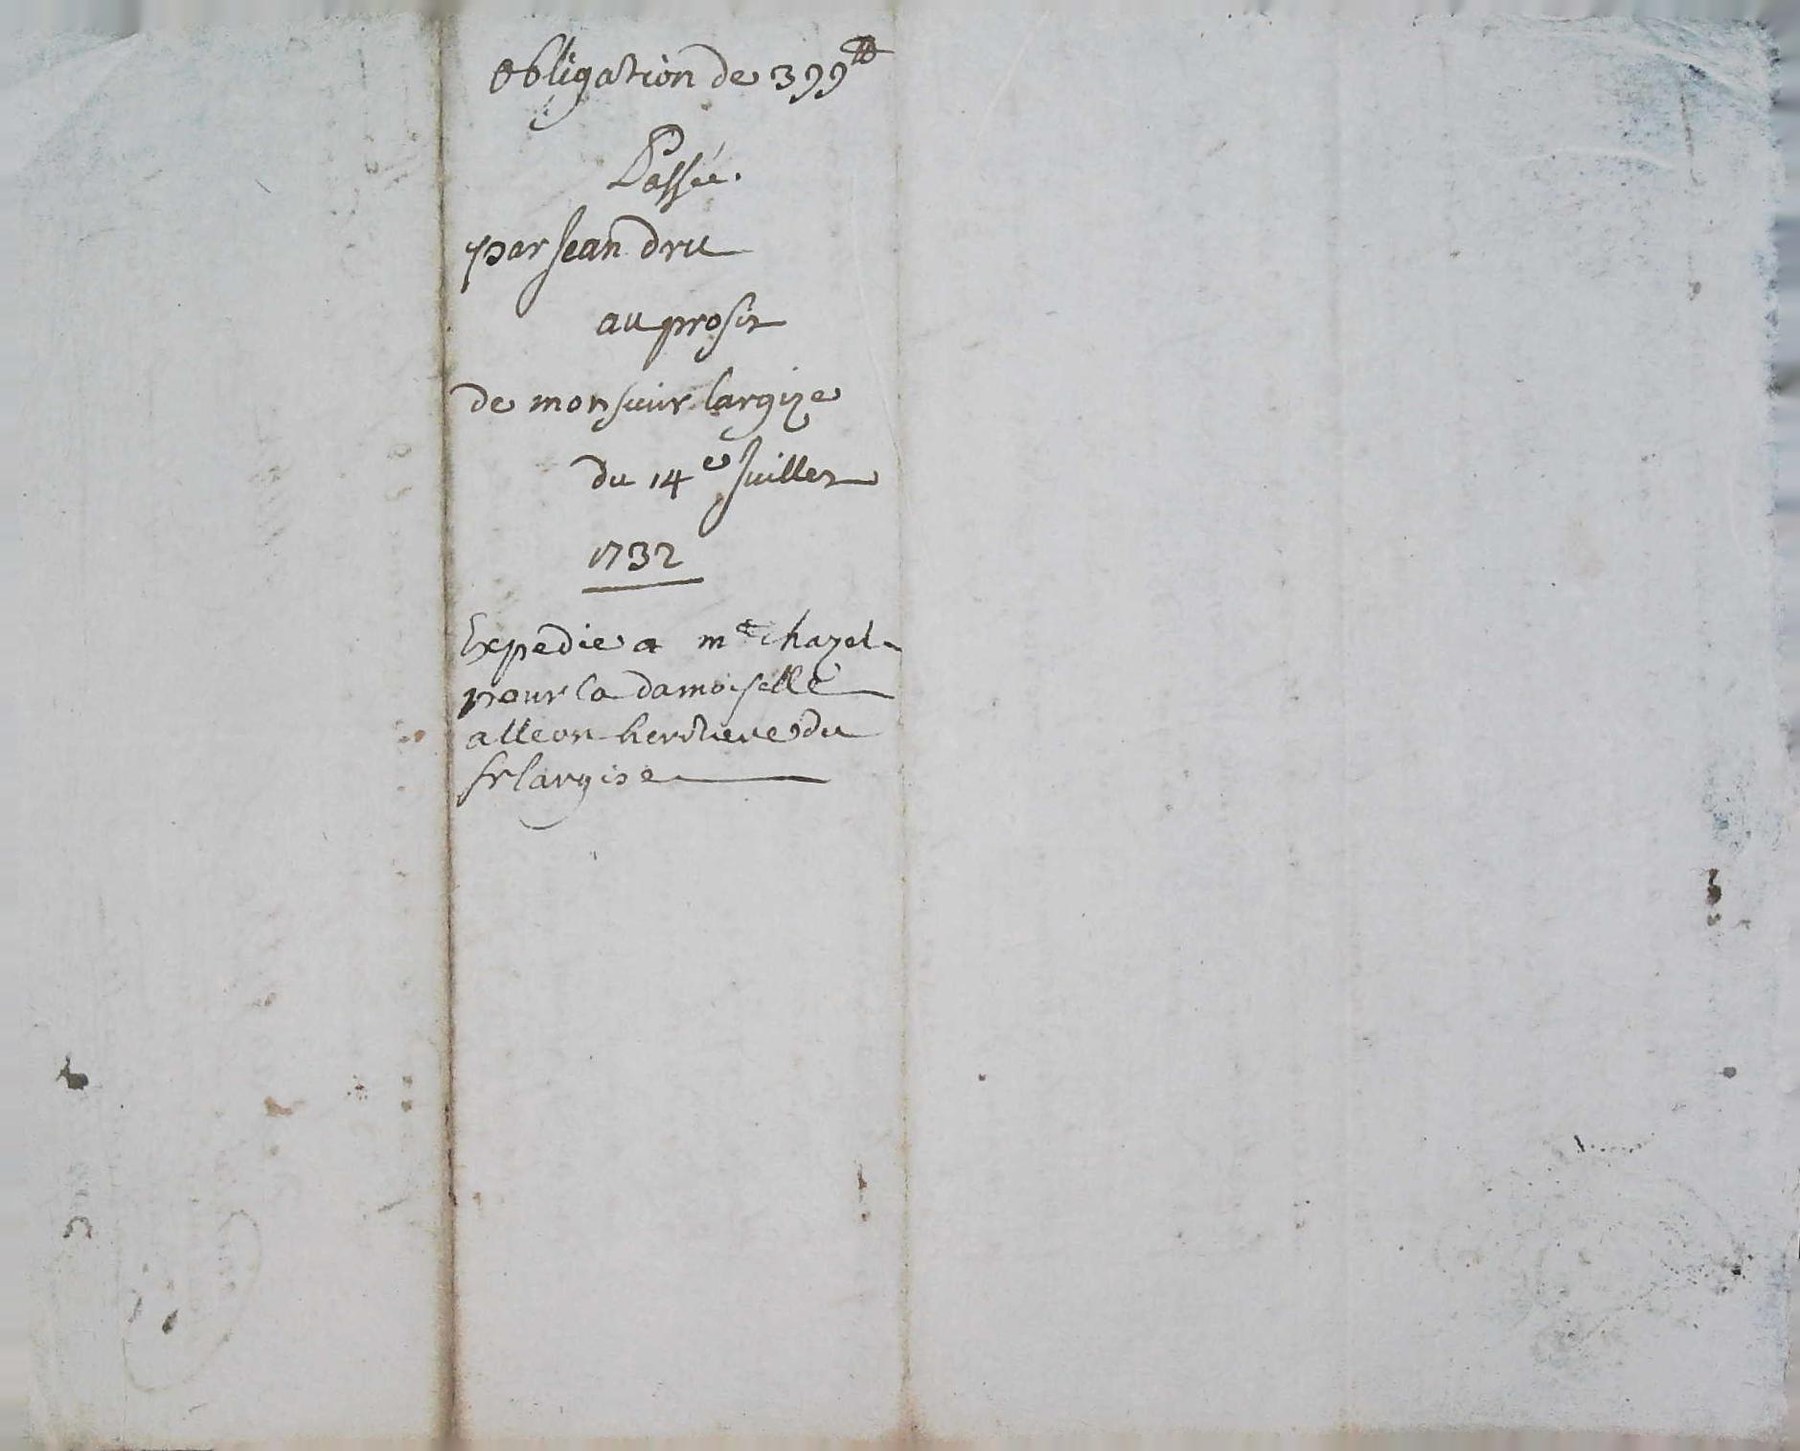 Obligation de 399₶
Passée.
par Jean dru
au profit
de monsieur largize
du 14e Juillet
1732
Expedie a me chazel
pour la damoiselle
alleon heritiere du
sr largise